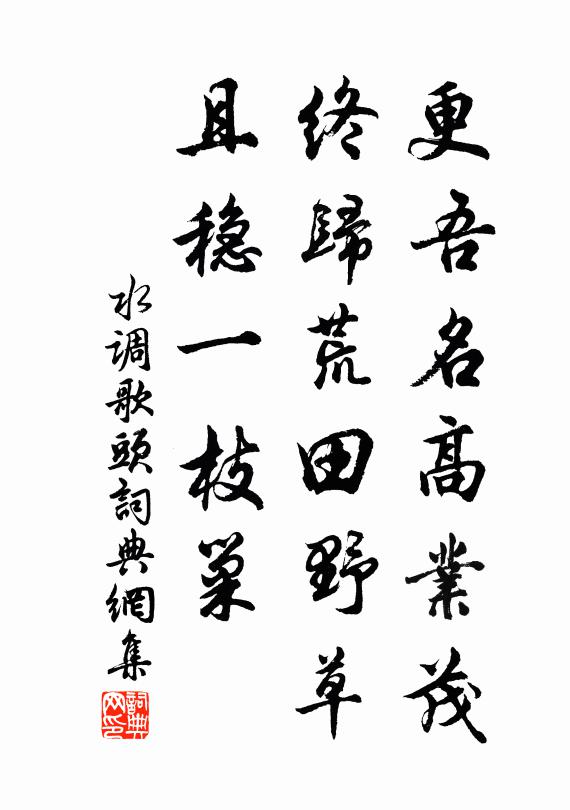 更吾名高業茂
終歸荒田野草
且穏一枝巢
水调歌頭詞典網集
詞典网印